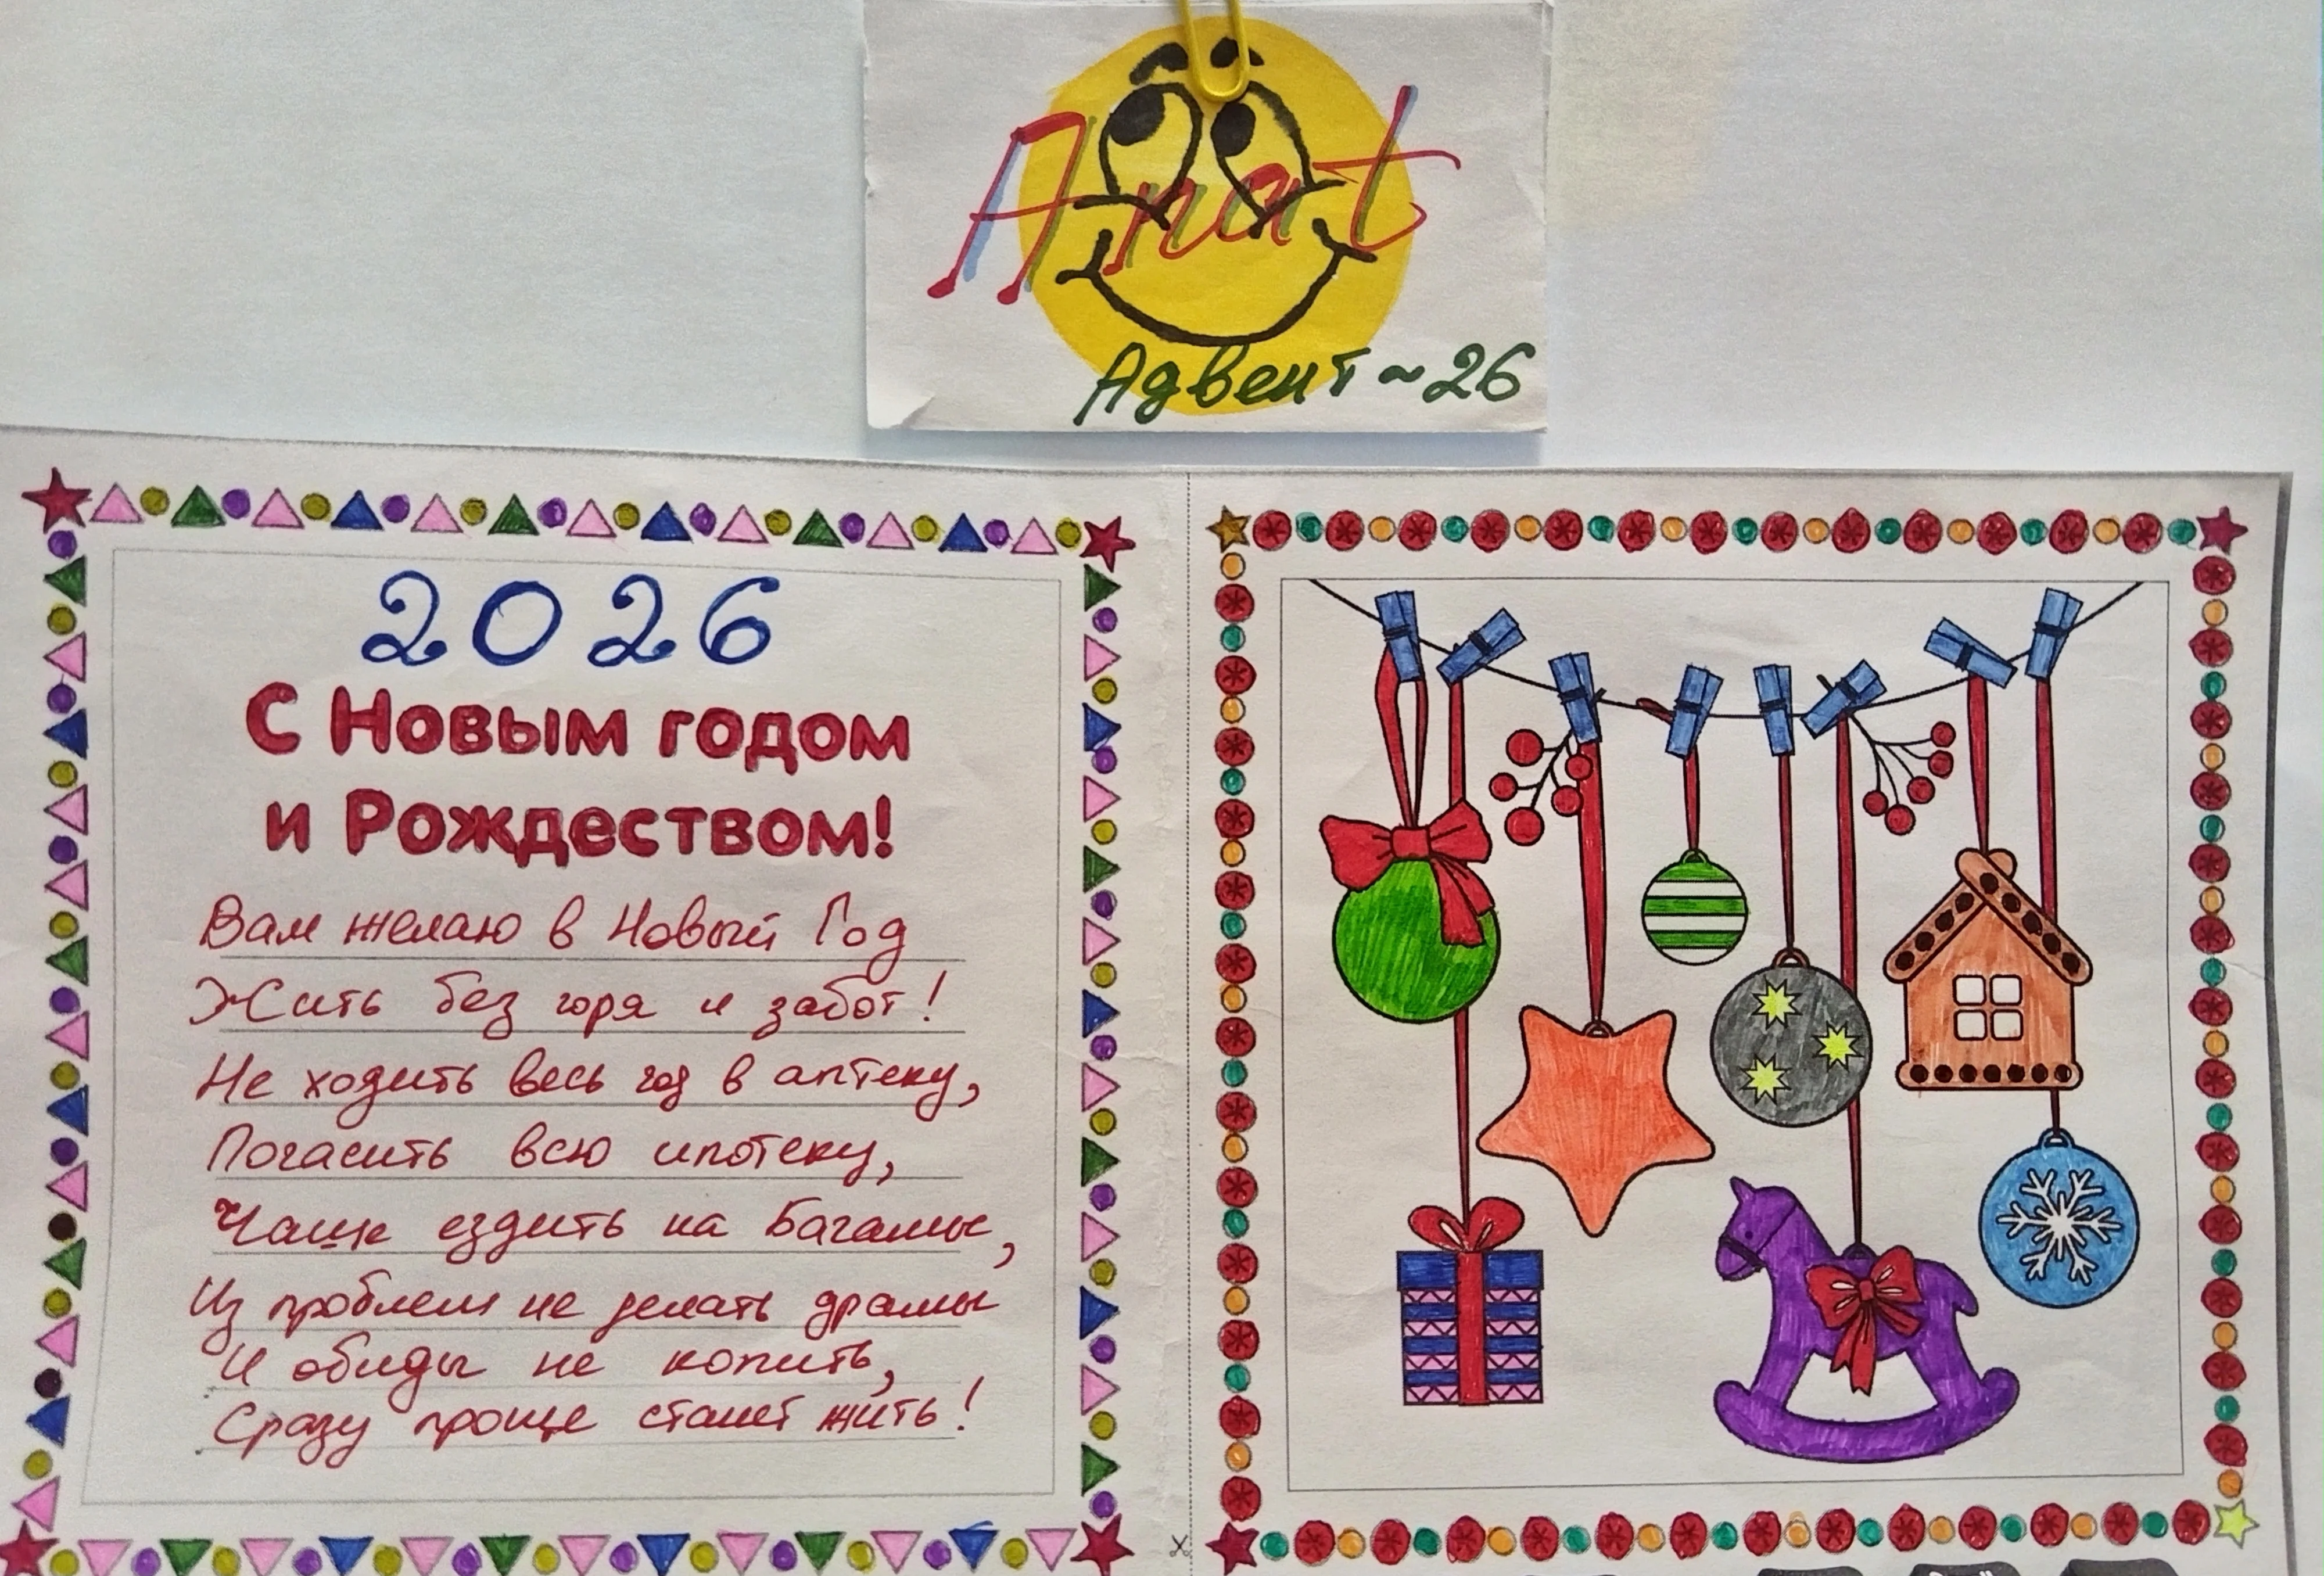 Anat
Адвент ~ 26
2026
С Новым годом
и Рождеством!
Вам желаю в Новый Год
Жить без горя и забот!
Не ходить весь год в аптеку,
Погасить всю ипотеку,
Чаще ездить на Багамы,
Из проблем не делать драмы
И обиды не копить,
Сразу проще станет жить!